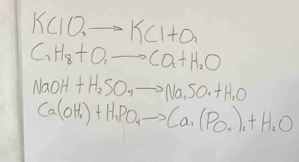 KClO₃ → KCl + O₂
C₃H₈ + O₂ → CO₂ + H₂O
NaOH + H₂SO₄ → Na₂SO₄ + H₂O
Ca(OH)₂ + H₃PO₄ → Ca₃(PO₄)₂ + H₂O